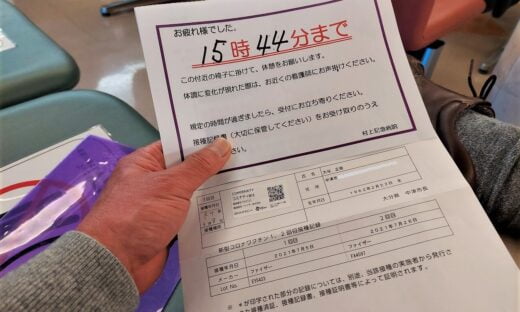 お疲れ様でした。
15時44分まで
この付近の椅子に掛けて、休憩をお願いします。
体調に変化が現れた際は、お近くの看護師にお声掛けください。
規定の時間が過ぎましたら、受付にお立ち寄りください。
接種記録書（大切に保管してください）をお受け取りのうえ
さい。
村上記念病院
氏名
住所
生年月日
大分県 中津市長
新型コロナワクチン1、2回目接種記録
1回目 2回目
接種年月日 2021年7月5日 2021年7月26日
メーカー ファイザー ファイザー
Lot No.
※ *が印字された部分の記録については、別途、当該接種の実施者から発行さ
接種記録書、接種証明書等によって証明されます。